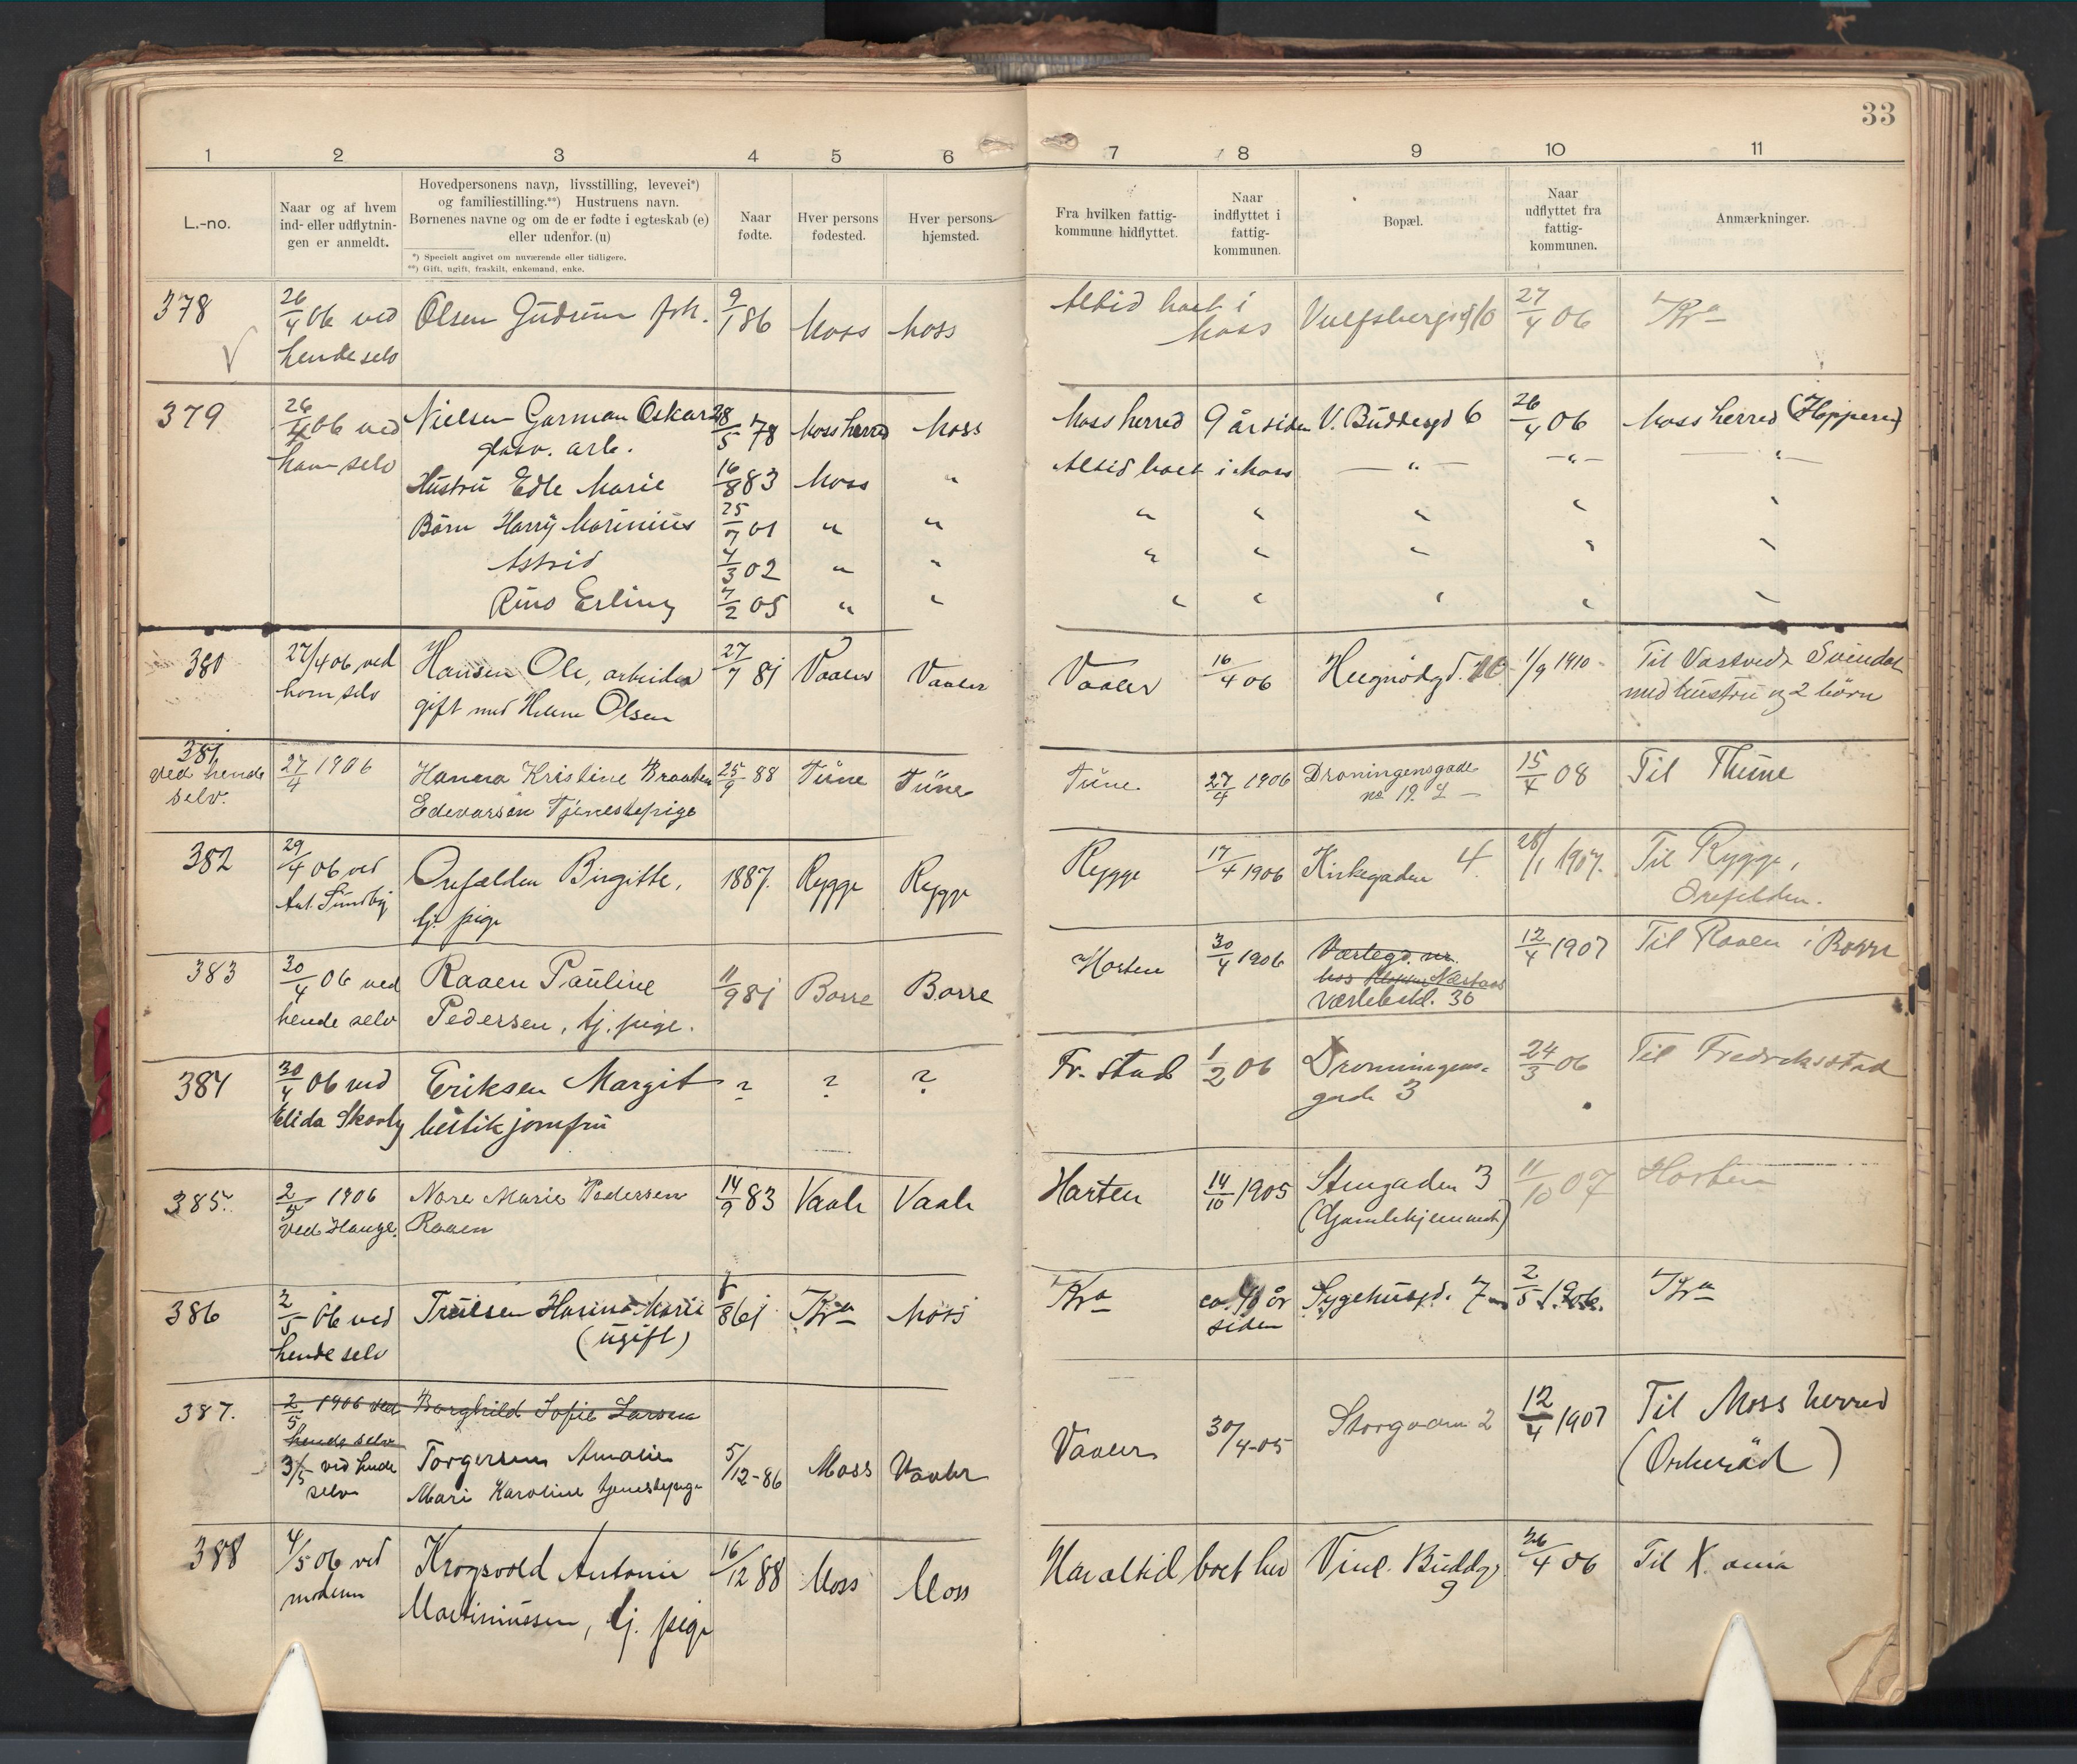 33
1 2 3 4 5 6 7 8 9 10 11
L.-no.
Naar og af hvem
ind- eller udflytnin-
gen er anmeldt.
Hovedpersonens navn, livsstilling, levevei*)
og familiestilling.**) Hustruens navn.
Børnenes navne og om de er fødte i egteskab (e)
eller udenfor. (u)
*) Specielt angivet om nuværende eller tidligere.
**) Gift, ugift, fraskilt, enkemand, enke.
Naar
fødte.
Hver persons
fødested.
Hver persons
hjemsted.
Fra hvilken fattig-
kommune hidflyttet.
Naar
indflyttet i
fattig-
kommunen.
Bopæl.
Naar
udflyttet fra
fattig-
kommunen.
Anmærkninger.
378 26/4 06 ved Olsen Gudrun frk. 9/1 86 Moss Moss Altid boet i Vulfsbergsg 10 27/4 06 Kra
hende selv Moss
379 26/4 06 ved Nielsen Garman Oskar 28/5 78 Moss herred Moss Moss herred 9 år siden V. Buddesgd 6 26/4 06 Moss herred (Hoppern)
ham selv glasv. arb.
Hustru Edle Marie 16/8 83 Moss " Altid boet i Moss — " — — " — — " —
Børn Harry Marinius 25/7 01 " " " " " " "
Astrid 7/3 02 " " " " " " "
Rino Erling 7/2 05 " " " " " " "
380 27/4 06 ved Hansen Ole, arbeider 27/7 81 Vaaler Vaaler Vaaler 16/4 06 Hegnsdgd. 10 1/9 1910 Til Vastvedt Svindal
ham selv gift med Helene Olsen med hustru og 2 børn
381 27/4 1906 Hanna Kristine Braaten 25/9 88 Tune Tune Tune 27/4 1906 Droningensgade 15/4 08 Til Thune
ved hende
selv. Edevarsen Tjenestepige no 19.
382 29/4 06 ved Orefælden Birgitte, 1887. Rygge Rygge Rygge 17/4 1906 Kirkegaden 4. 28/1 1907. Til Rygge,
Ant. Sundby tj. pige Orefelden.
383 30/4 06 ved Raaen Pauline 11/9 81 Borre Borre Horten 30/4 1906 Værlegd. nr. 12/4 1907 Til Raaen i Borre
hende selv Pedersen, tj. pige. hos Næstaas
Værlebakk. 36
384 30/4 06 ved Eriksen Margit ? ? ? Fr.stad 1/2 06 Dronningens- 24/3 06 Til Fredrikstad
Elida Skovly bestikjomfru gade 3
385. 2/5 1906 Nora Marie Pedersen 14/9 83 Vaale Vaale Horten 14/10 1905 Stengaden 3 11/10 07 Horten
ved Hauge. Raaen (Gamlehjemmet)
386 2/5 06 ved Trulsen Hanna Marie 8/8 61 Kra Moss Kra ca. 40 år Sygehusgd. 7 2/5 1906. Kra
hende selv (ugift) siden
387. 2/5 1906 ved Borghild Sofie Larsen
hende selv
3/5 ved hende Torgersen Amalie 5/12-86 Moss Vaaler Vaaler 30/4-05 Storgaden 2 12/4 1907 Til Moss herred
selv Mari Karoline tjenestepige (Orkerød)
388 4/5 06 ved Krogsvold Antonie 16/12 88 Moss Moss Har altid boet her Vinc. Buddsg 26/4 06 Til X.ania
moderen Martiniussen, tj. pige 9